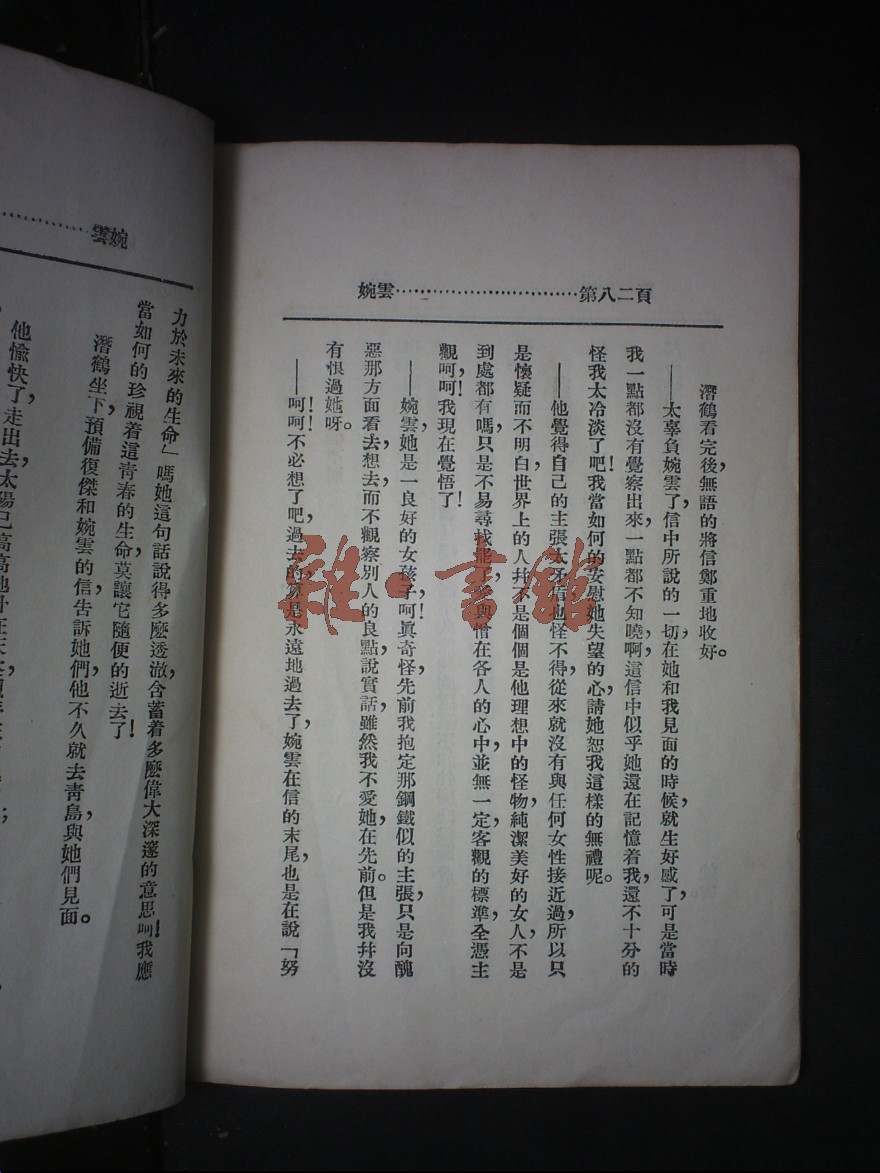 婉雲⋯⋯⋯⋯⋯⋯⋯⋯⋯⋯第八二頁
潛鶴看完後,無語的將信鄭重地收好。
——太辜負婉雲了,信中所說的一切,在她和我見面的時候,就生好感了,可是當時
我一點都沒有覺察出來,一點都不知曉,啊,這信中似乎她還在記憶着我,還不十分的
怪我太冷淡了吧!我當如何的安慰她失望的心,請她恕我這樣的無禮呢。
——他覺得自己的主張太矛盾,也怪不得,從來就沒有與任何女性接近過,所以只
是懷疑而不明白,世界上的人幷不是個個是他理想中的怪物,純潔美好的女人,不是
到處都有嗎,只是不易尋找罷了,愛與憎在各人的心中,並無一定客觀的標準,全憑主
觀,呵呵!我現在覺悟了!
——婉雲她是一良好的女孩子呵!眞奇怪,先前我抱定那鋼鐵似的主張,只是向醜
惡那方面看去,想去,而不觀察別人的良點,說實話,雖然我不愛她,在先前。但是我幷沒
有恨過她呀。
——呵!呵!不必想了吧,過去的,算是永遠地過去了,婉雲在信的末尾,也是在說「努
婉雲
力於未來的生命」嗎,她這句話說得多麼透澈,含蓄着多麼偉大深邃的意思呵!我應
當如何的珍視着這靑春的生命,莫讓它隨便的逝去了!
潛鶴坐下,預備復傑和婉雲的信,告訴她們,他不久就去靑島,與她們見面。
他愉快了,走出去,太陽已高高地
雜·書館